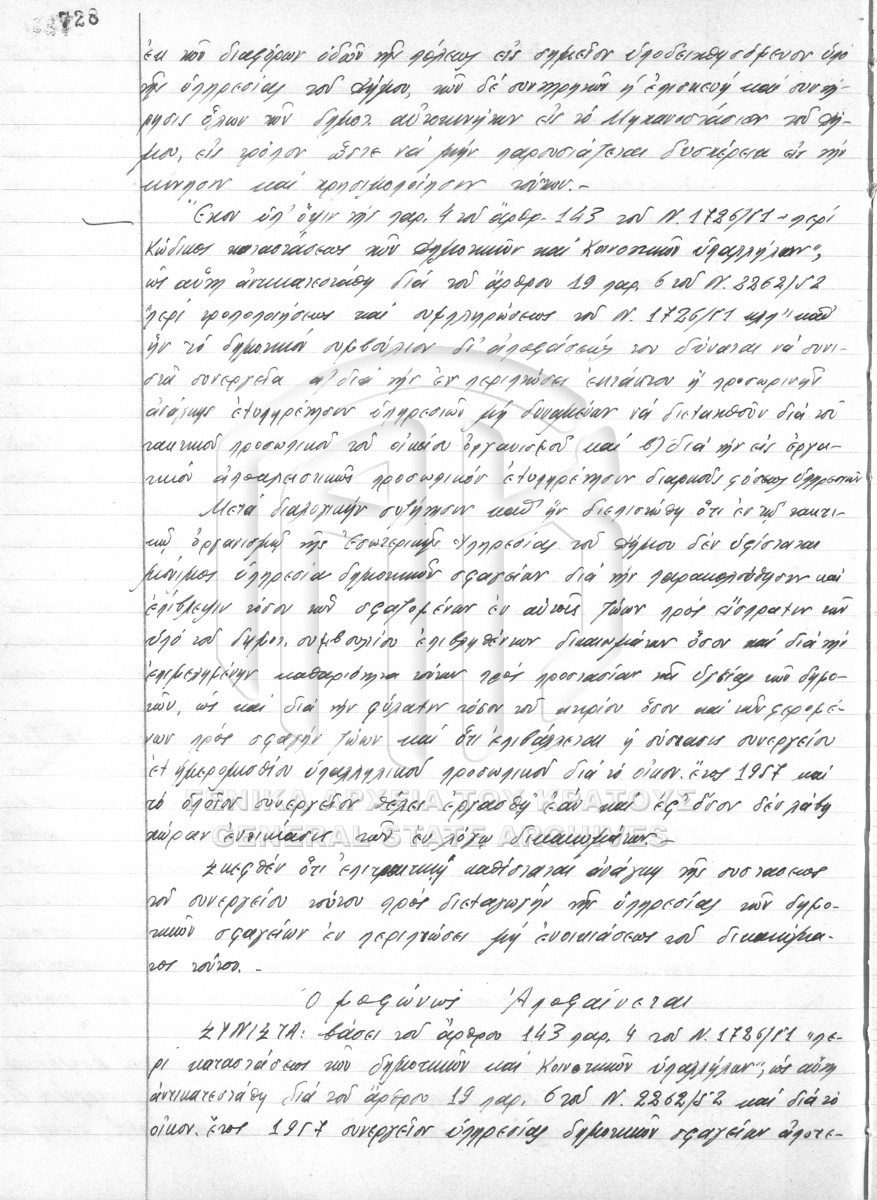 728
ἐκ τῶν διαφόρων ὁδῶν τῆς πόλεως εἰς σημεῖον ὑποδειχθησόμενον ὑπὸ
τῆς ὑπηρεσίας τοῦ Δήμου, τῶν δὲ συνεργείων ἡ ἐπισκευή καὶ συντή-
ρησις ὅλων τῶν δημοτ. αὐτοκινήτων εἰς τὸ Μηχανοστάσιον τοῦ Δή-
μου, εἰς τρόπον ὥστε νὰ μὴν παρουσιάζεται δυσχέρεια εἰς τὴν
κίνησιν καὶ χρησιμοποίησιν τούτων.-
Ἔχον ὑπ' ὄψιν τῆς παρ. 4 τοῦ ἄρθρ. 143 τοῦ Ν. 1726/51 "περί
Κώδικος καταστάσεως τῶν Δημοτικῶν καὶ Κοινοτικῶν ὑπαλλήλων",
ὡς αὕτη ἀντικατεστάθη διὰ τοῦ ἄρθρου 19 παρ. 6 τοῦ Ν. 2262/52
"περί τροποποιήσεως καὶ συμπληρώσεως τοῦ Ν. 1726/51 κλπ" καθ'
ἥν τὸ δημοτικὸν συμβούλιον δι' ἀποφάσεώς του δύναται νὰ συνι-
στᾶ συνεργεῖα α) διὰ τὴν ἐν περιπτώσει ἐκτάκτου ἤ προσωρινῆς
ἀνάγκης ἐξυπηρέτησιν ὑπηρεσιῶν μὴ δυναμένων νὰ διεξαχθοῦν διὰ τοῦ
τακτικοῦ προσωπικοῦ τοῦ οἰκείου ὀργανισμοῦ καὶ β) διὰ τὴν εἰς ἐργα-
τικὸν ἀποκλειστικῶς προσωπικὸν ἐξυπηρέτησιν διαρκοῦς φύσεως ὑπηρεσιῶν
Μετὰ διαλογικὴν συζήτησιν καθ' ἥν διεπιστώθη ὅτι ἐν τῷ τακτι-
κῷ ὀργανισμῷ τῆς Ἐσωτερικῆς Ὑπηρεσίας τοῦ Δήμου δὲν ὑφίσταται
μόνιμος ὑπηρεσία δημοτικῶν σφαγείων διὰ τὴν παρακολούθησιν καὶ
ἐπίβλεψιν τόσον τῶν σφαζομένων ἐν αὐτοῖς ζώων πρὸς εἴσπραξιν τῶν
ὑπὸ τοῦ δημοτ. συμβουλίου ἐπιβληθέντων δικαιωμάτων ὅσον καὶ διὰ τὴν
ἐπιμελημένην καθαριότητα τούτων πρὸς προστασίαν τῆς ὑγείας τῶν δημο-
τῶν, ὡς καὶ διὰ τὴν φύλαξιν τόσον τοῦ κτιρίου ὅσον καὶ τῶν φερομέ-
νων πρὸς σφαγὴν ζώων καὶ ὅτι ἐπιβάλλεται ἡ σύστασις συνεργείου
ἐξ ἡμερομισθίου ὑπαλληλικοῦ προσωπικοῦ διὰ τὸ οἰκον. ἔτος 1957 καὶ
τὸ ὁποῖον συνεργεῖον θέλει ἐργασθῆ ἐὰν καὶ ἐφ' ὅσον δὲν λάβη
χώραν ἐνοικίασις τῶν ἐν λόγω δικαιωμάτων.-
Σκεφθὲν ὅτι ἐπιτακτική καθίσταται ἀνάγκη τῆς συστάσεως
τοῦ συνεργείου τούτου πρὸς διεξαγωγήν τῆς ὑπηρεσίας τῶν δημο-
τικῶν σφαγείων ἐν περιπτώσει μὴ ἐνοικιάσεως τοῦ δικαιώμα-
τος τούτου.-
Ὁμοφώνως Ἀποφαίνεται
ΣΥΝΙΣΤΑ: βάσει τοῦ ἄρθρου 143 παρ. 4 τοῦ Ν. 1726/51 "πε-
ρὶ καταστάσεως τῶν δημοτικῶν καὶ Κοινοτικῶν ὑπαλλήλων", ὡς αὕτη
ἀντικατεστάθη διὰ τοῦ ἄρθρου 19 παρ. 6 τοῦ Ν. 2262/52 καὶ διὰ τὸ
οἰκον. ἔτος 1957 συνεργεῖον ὑπηρεσίας δημοτικῶν σφαγείων ἀποτε-
ΓΕΝΙΚΑ ΑΡΧΕΙΑ ΤΟΥ ΚΡΑΤΟΥΣ
GENERAL STATE ARCHIVES